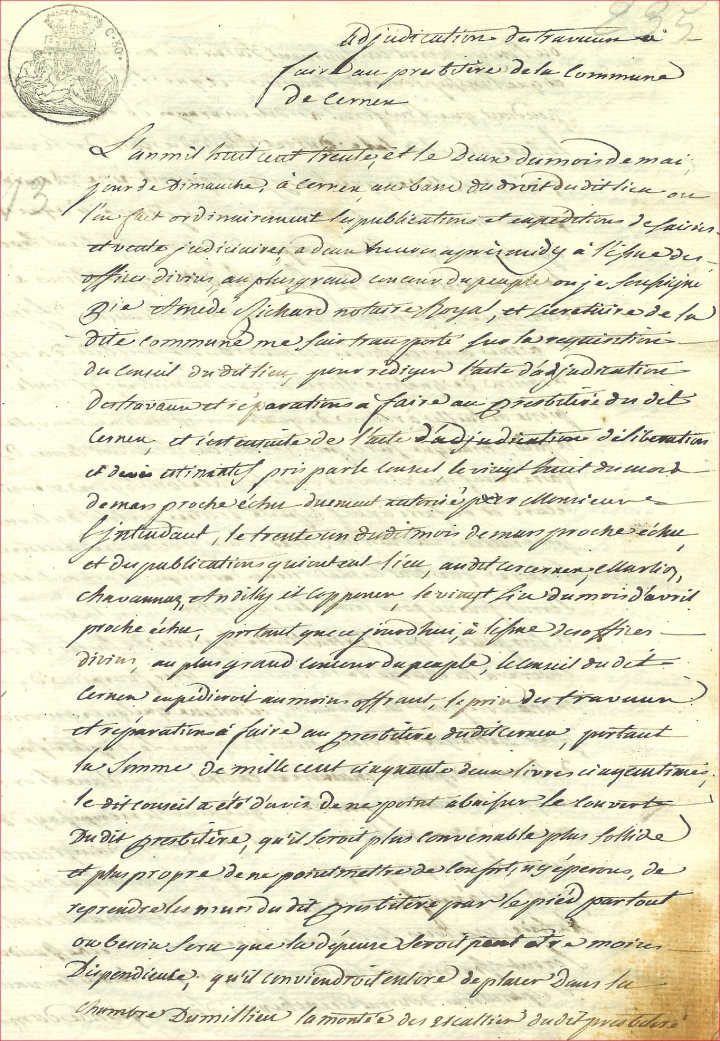 235
C. 80.
adjudication des travaux a
faire au presbitère de la Commune
de Cernex
13
L'an mil huit cent trente, et le deux du mois de mai,
jour de Dimanche, à Cernex, au banc du droit du dit lieu ou
l'on fait ordinairement les publications et expéditions de saisies
et vente judiciaires, a deux heures après midy à l'issue des
offices divins, au plus grand concour du peuple ou je soussigné
Amédé Richard notaire Royal, et secretaire de la
dite commune me suis transporté sur la requisition
du Conseil du dit lieu, pour rediger l'acte d'adjudication
des travaux et réparations a faire au Presbitère du dit
Cernex, et c'est ensuite de l'acte d'adjudication déliberation
et devis estimatif, pris par le Conseil, le vingt huit du mois
de mars proche échu duement autorisé par Monsieur
l'jntendant, le trente un du dit mois de mars proche échu,
et des publications qui ont eut lieu, au dit Cernex, Marlioz,
Chavannaz, Andilly et Copponex, le vingt du mois d'avril
proche échu, portant que ce jourd'hui, à l'issue des offices
divins, au plus grand concour du peuple, le Conseil du dit
Cernex expedieroit au moins offrant, le prix des travaux
et réparation à faire au Presbitère du dit Cernex, portant
la Somme de mille cent cinquante deux livres cinq centimes,
le dit Conseil a été d'avis de ne point abaisser le couvert
Du dit Presbitère, qu'il seroit plus convenable plus sollide
et plus propre de ne point mettre de confort, ny éperons, de
reprendre les murs du dit Presbitère par le pied partout
ou besoin sera que la dépense seroit peut etre moins
Dispendieuse, qu'il conviendroit encore de placer Dans la
chambre Du millieu la montée des escallier du dit presbitère